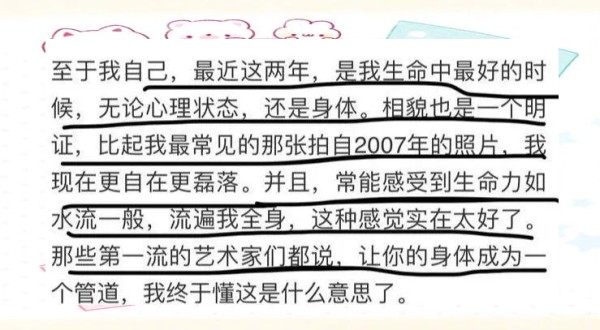 至于我自己，最近这两年，是我生命中最好的时
候，无论心理状态，还是身体。相貌也是一个明
证，比起我最常见的那张拍自2007年的照片，我
现在更自在更磊落。并且，常能感受到生命力如
水流一般，流遍我全身，这种感觉实在太好了。
那些第一流的艺术家们都说，让你的身体成为一
个管道，我终于懂这是什么意思了。